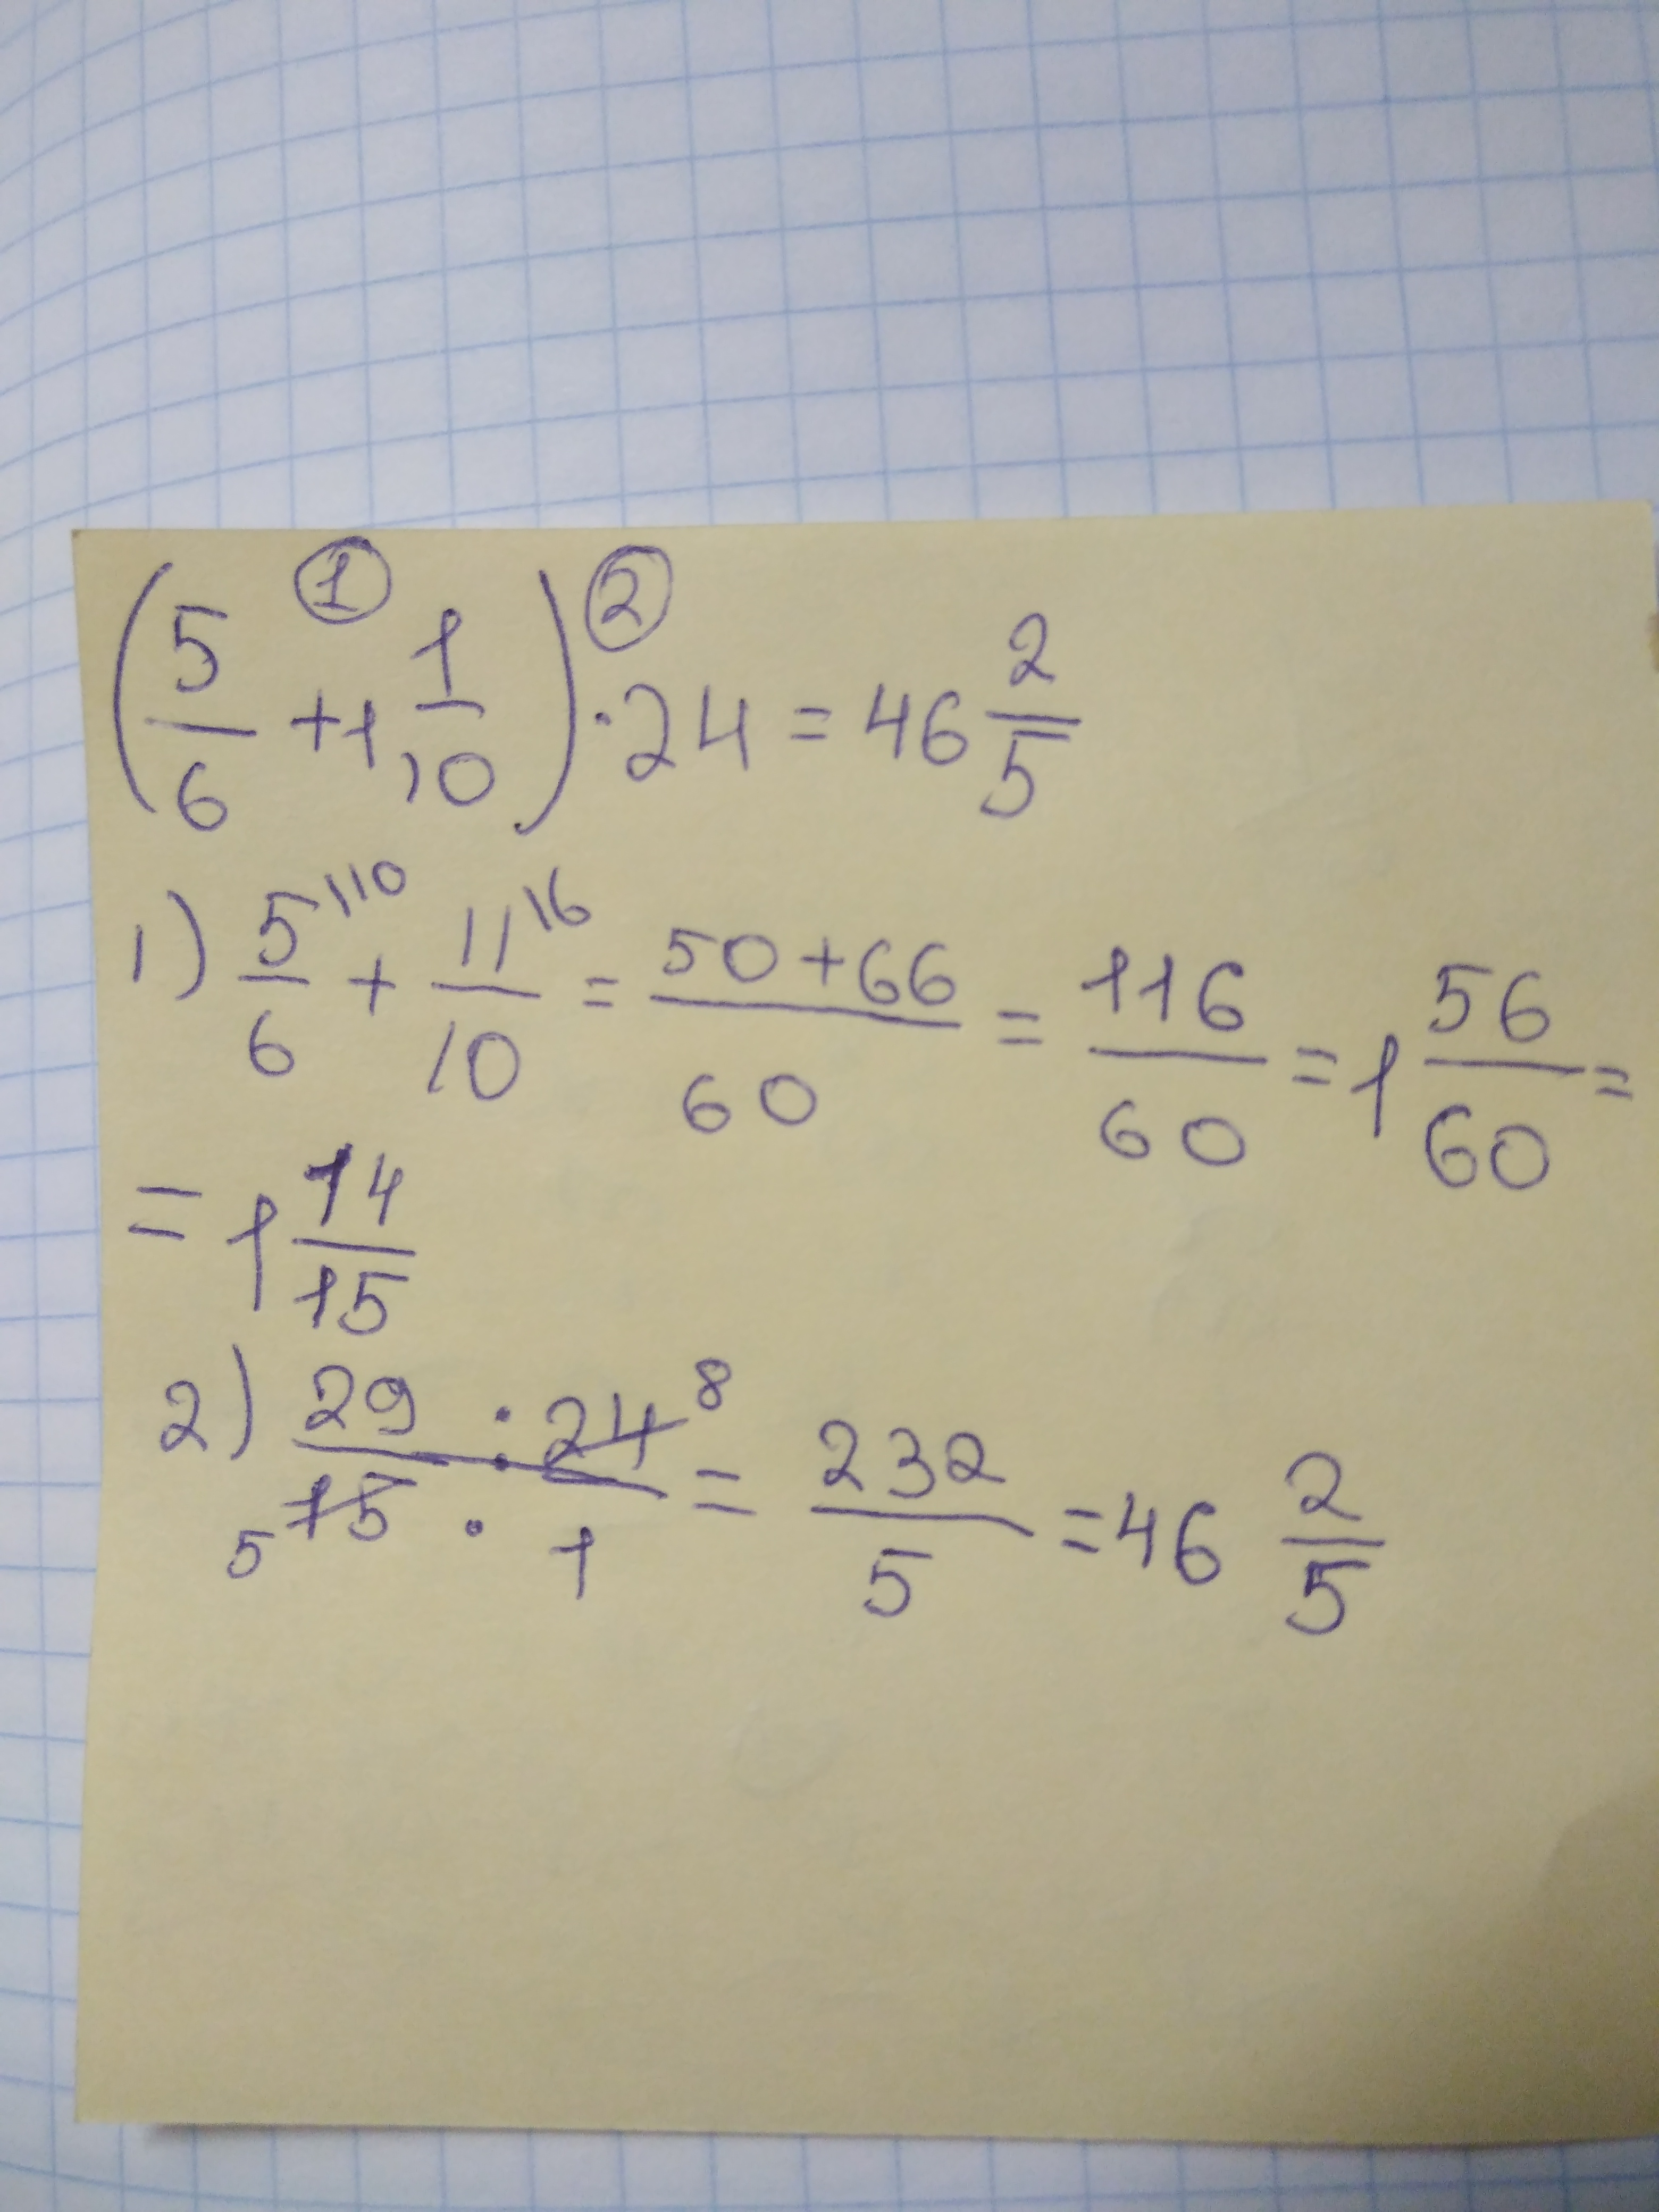 (5/6 + 1 1/10) · 24 = 46 2/5
① ②
1) 5\10/6 + 11\6/10 = 50+66/60 = 116/60 = 1 56/60 =
= 1 14/15
2) 29 · 24 8/5 15 · 1 = 232/5 = 46 2/5